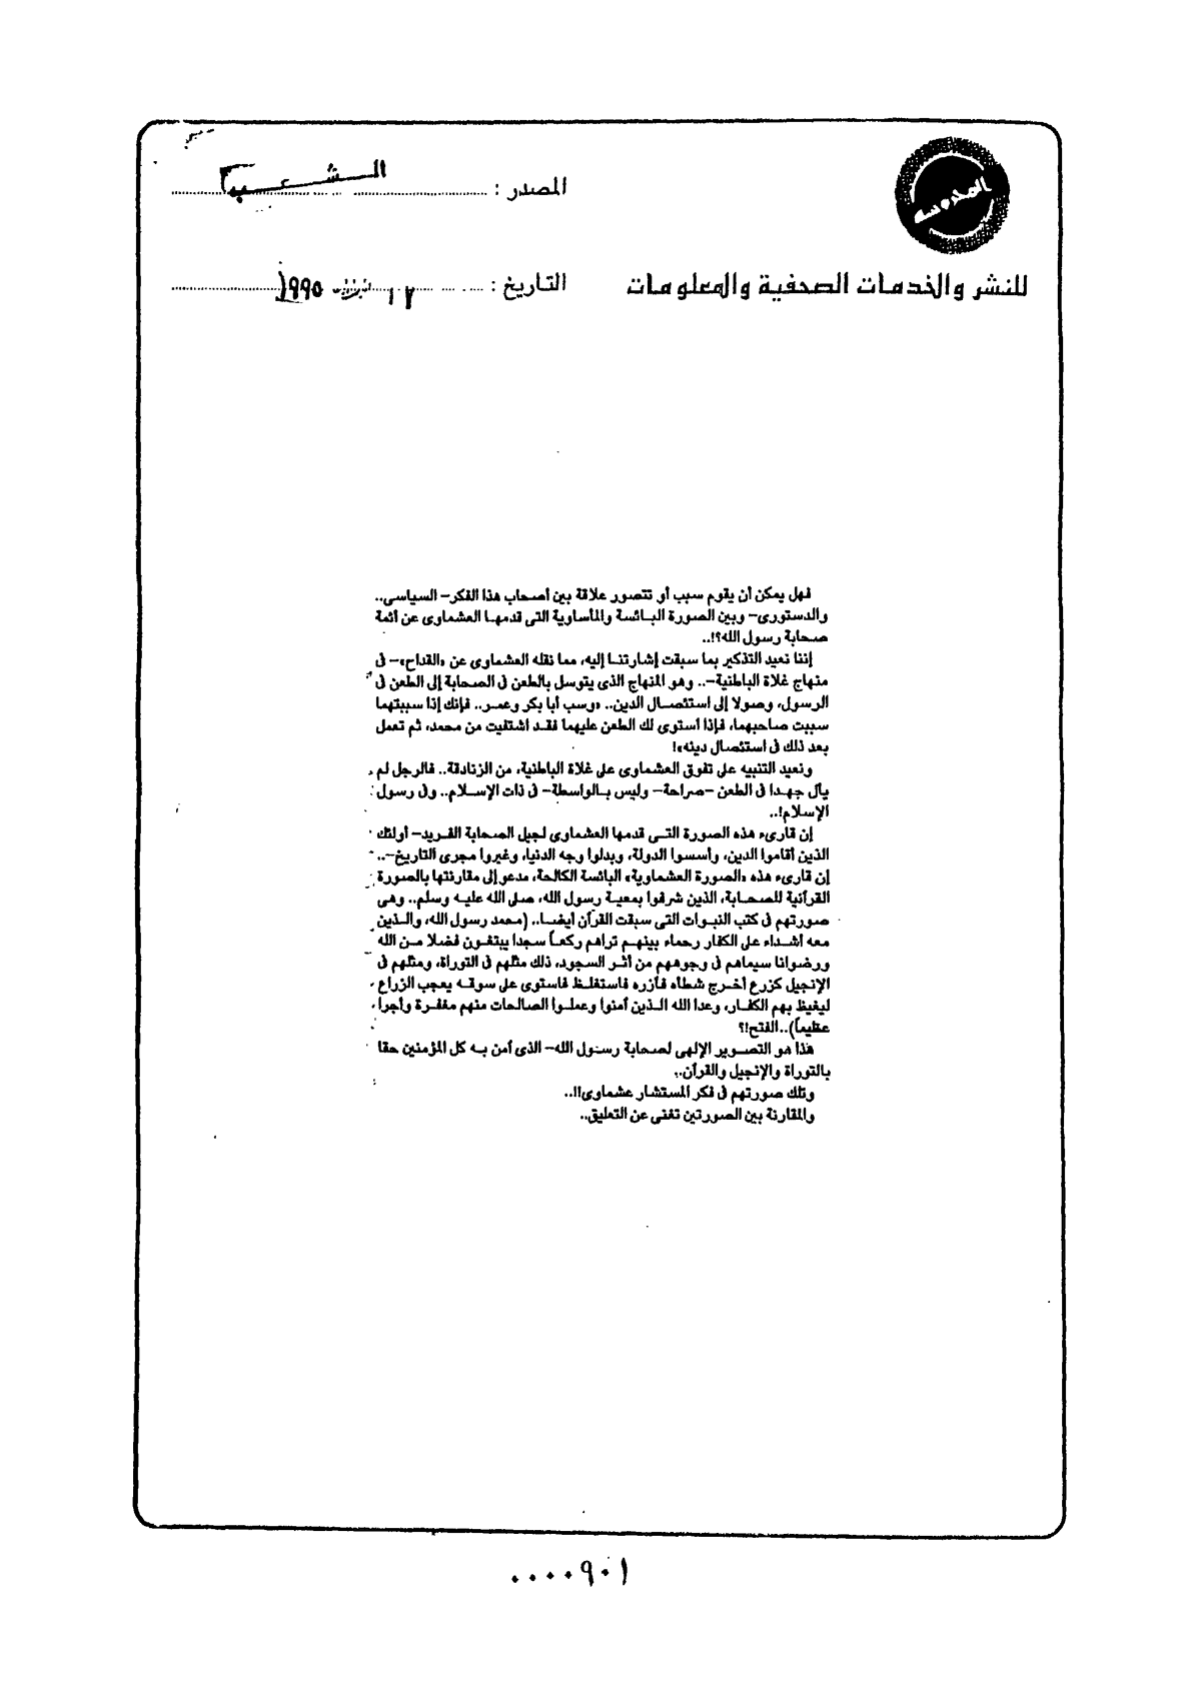 المصدر : الشعب
المحروسة
للنشر والخدمات الصحفية والمعلومات
التاريخ : ١٩٩٥
فهل يمكن أن يقوم سبب أو تتصور علاقة بين أصحاب هذا الفكر– السياسى..
والدستورى– وبين الصورة البائسة والمأساوية التى قدمها العشماوى عن أئمة
صحابة رسول الله؟!..
إننا نعيد التذكير بما سبقت إشارتنا إليه، مما نقله العشماوى عن «القداح»– فى
منهاج غلاة الباطنية–.. وهو المنهاج الذى يتوسل بالطعن فى الصحابة إلى الطعن فى
الرسول، وصولا إلى استئصال الدين.. «وسب أبا بكر وعمر.. فإنك إذا سببتهما
سببت صاحبهما، فإذا استوى لك الطعن عليهما فقد اشتفيت من محمد، ثم تعمل
بعد ذلك فى استئصال دينه»!
ونعيد التنبيه على تفوق العشماوى على غلاة الباطنية، من الزنادقة.. فالرجل لم
يأل جهدا فى الطعن –صراحة– وليس بالواسطة– فى ذات الإسلام.. وفى رسول
الإسلام!..
إن قارىء هذه الصورة التى قدمها العشماوى لجيل الصحابة الفريد– أولئك
الذين أقاموا الدين، وأسسوا الدولة، وبدلوا وجه الدنيا، وغيروا مجرى التاريخ–..
إن قارىء هذه «الصورة العشماوية» البائسة الكالحة، مدعو إلى مقارنتها بالصورة
القرآنية للصحابة، الذين شرفوا بمعية رسول الله، صلى الله عليه وسلم.. وهى
صورتهم فى كتب النبوات التى سبقت القرآن أيضا.. (محمد رسول الله، والذين
معه أشداء على الكفار رحماء بينهم تراهم ركعاً سجدا يبتغون فضلا من الله
ورضوانا سيماهم فى وجوههم من أثر السجود، ذلك مثلهم فى التوراة، ومثلهم فى
الإنجيل كزرع أخرج شطأه فآزره فاستغلظ فاستوى على سوقه يعجب الزراع
ليغيظ بهم الكفار، وعدا الله الذين أمنوا وعملوا الصالحات منهم مغفرة وأجرا
عظيماً)..الفتح!؟
هذا هو التصوير الإلهى لصحابة رسول الله– الذى آمن به كل المؤمنين حقا
بالتوراة والإنجيل والقرآن..
وتلك صورتهم فى فكر المستشار عشماوى!!..
والمقارنة بين الصورتين تغنى عن التعليق..
٠٠٠٠٩٠١